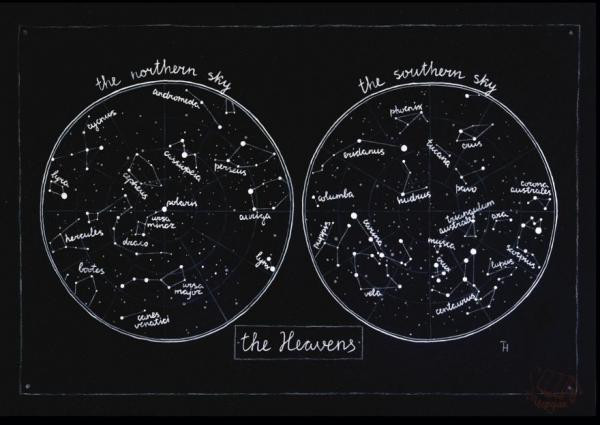 the northern sky
the southern sky
andromeda
cygnus
cassiopeia
perseus
cepheus
lyra
polaris
ursa
minor
auriga
hercules
draco
bootes
ursa
major
canes
venatici
phoenix
grus
tuccana
eridanus
pavo
corona
australes
columba
hydrus
triangulum
australis
ara
puppis
carina
musca
crux
scorpius
lupus
vela
centaurus
the Heavens
JH